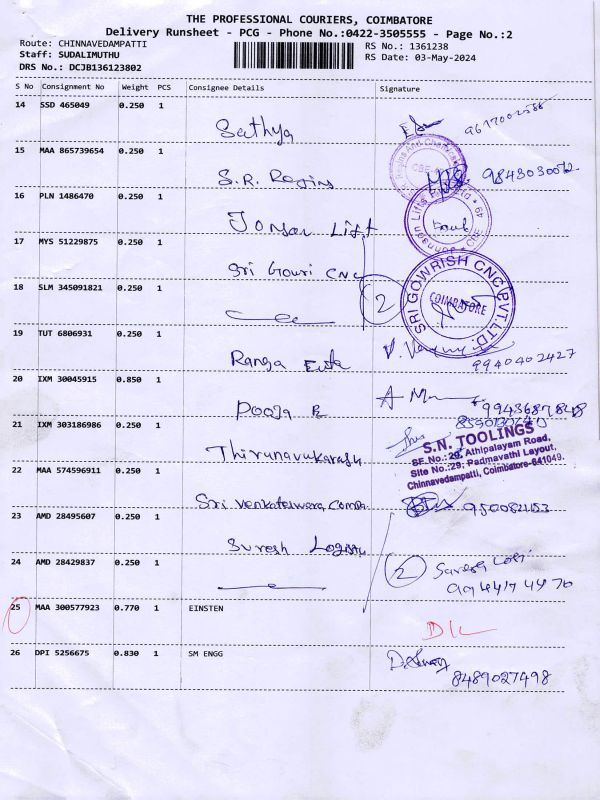 THE PROFESSIONAL COURIERS, COIMBATORE
Delivery Runsheet - PCG - Phone No.:0422-3505555 - Page No.:2
Route: CHINNAVEDAMPATTI RS No.: 1361238
Staff: SUDALIMUTHU RS Date: 03-May-2024
DRS No.: DCJB136123802
S No Consignment No Weight PCS Consignee Details Signature
14 SSD 465049 0.250 1
Sathya
15 MAA 865739654 0.250 1
S.R. Regins 9843030072
16 PLN 1486470 0.250 1
Jonson Lift
17 MYS 51229875 0.250 1
Sri Gouri CNC
SRI GOWRISH CNC PVT.LTD.
COIMBATORE
18 SLM 345091821 0.250 1
2
19 TUT 6806931 0.250 1
Ranga 9940402427
20 IXM 30045915 0.850 1
Pooja R 9943687848
21 IXM 303186986 0.250 1
Thirunavukarasu
S.N. TOOLINGS
SF.No.: 29, Athipalayam Road,
Site No.:29, Padmavathi Layout,
Chinnavedampatti, Coimbatore-641049.
22 MAA 574596911 0.250 1
Sri Venkateswara
23 AMD 28495607 0.250 1
Suresh
24 AMD 28429837 0.250 1
2
9944174470
25 MAA 300577923 0.770 1 EINSTEN
D/L
26 DPI 5256675 0.830 1 SM ENGG
8489027498